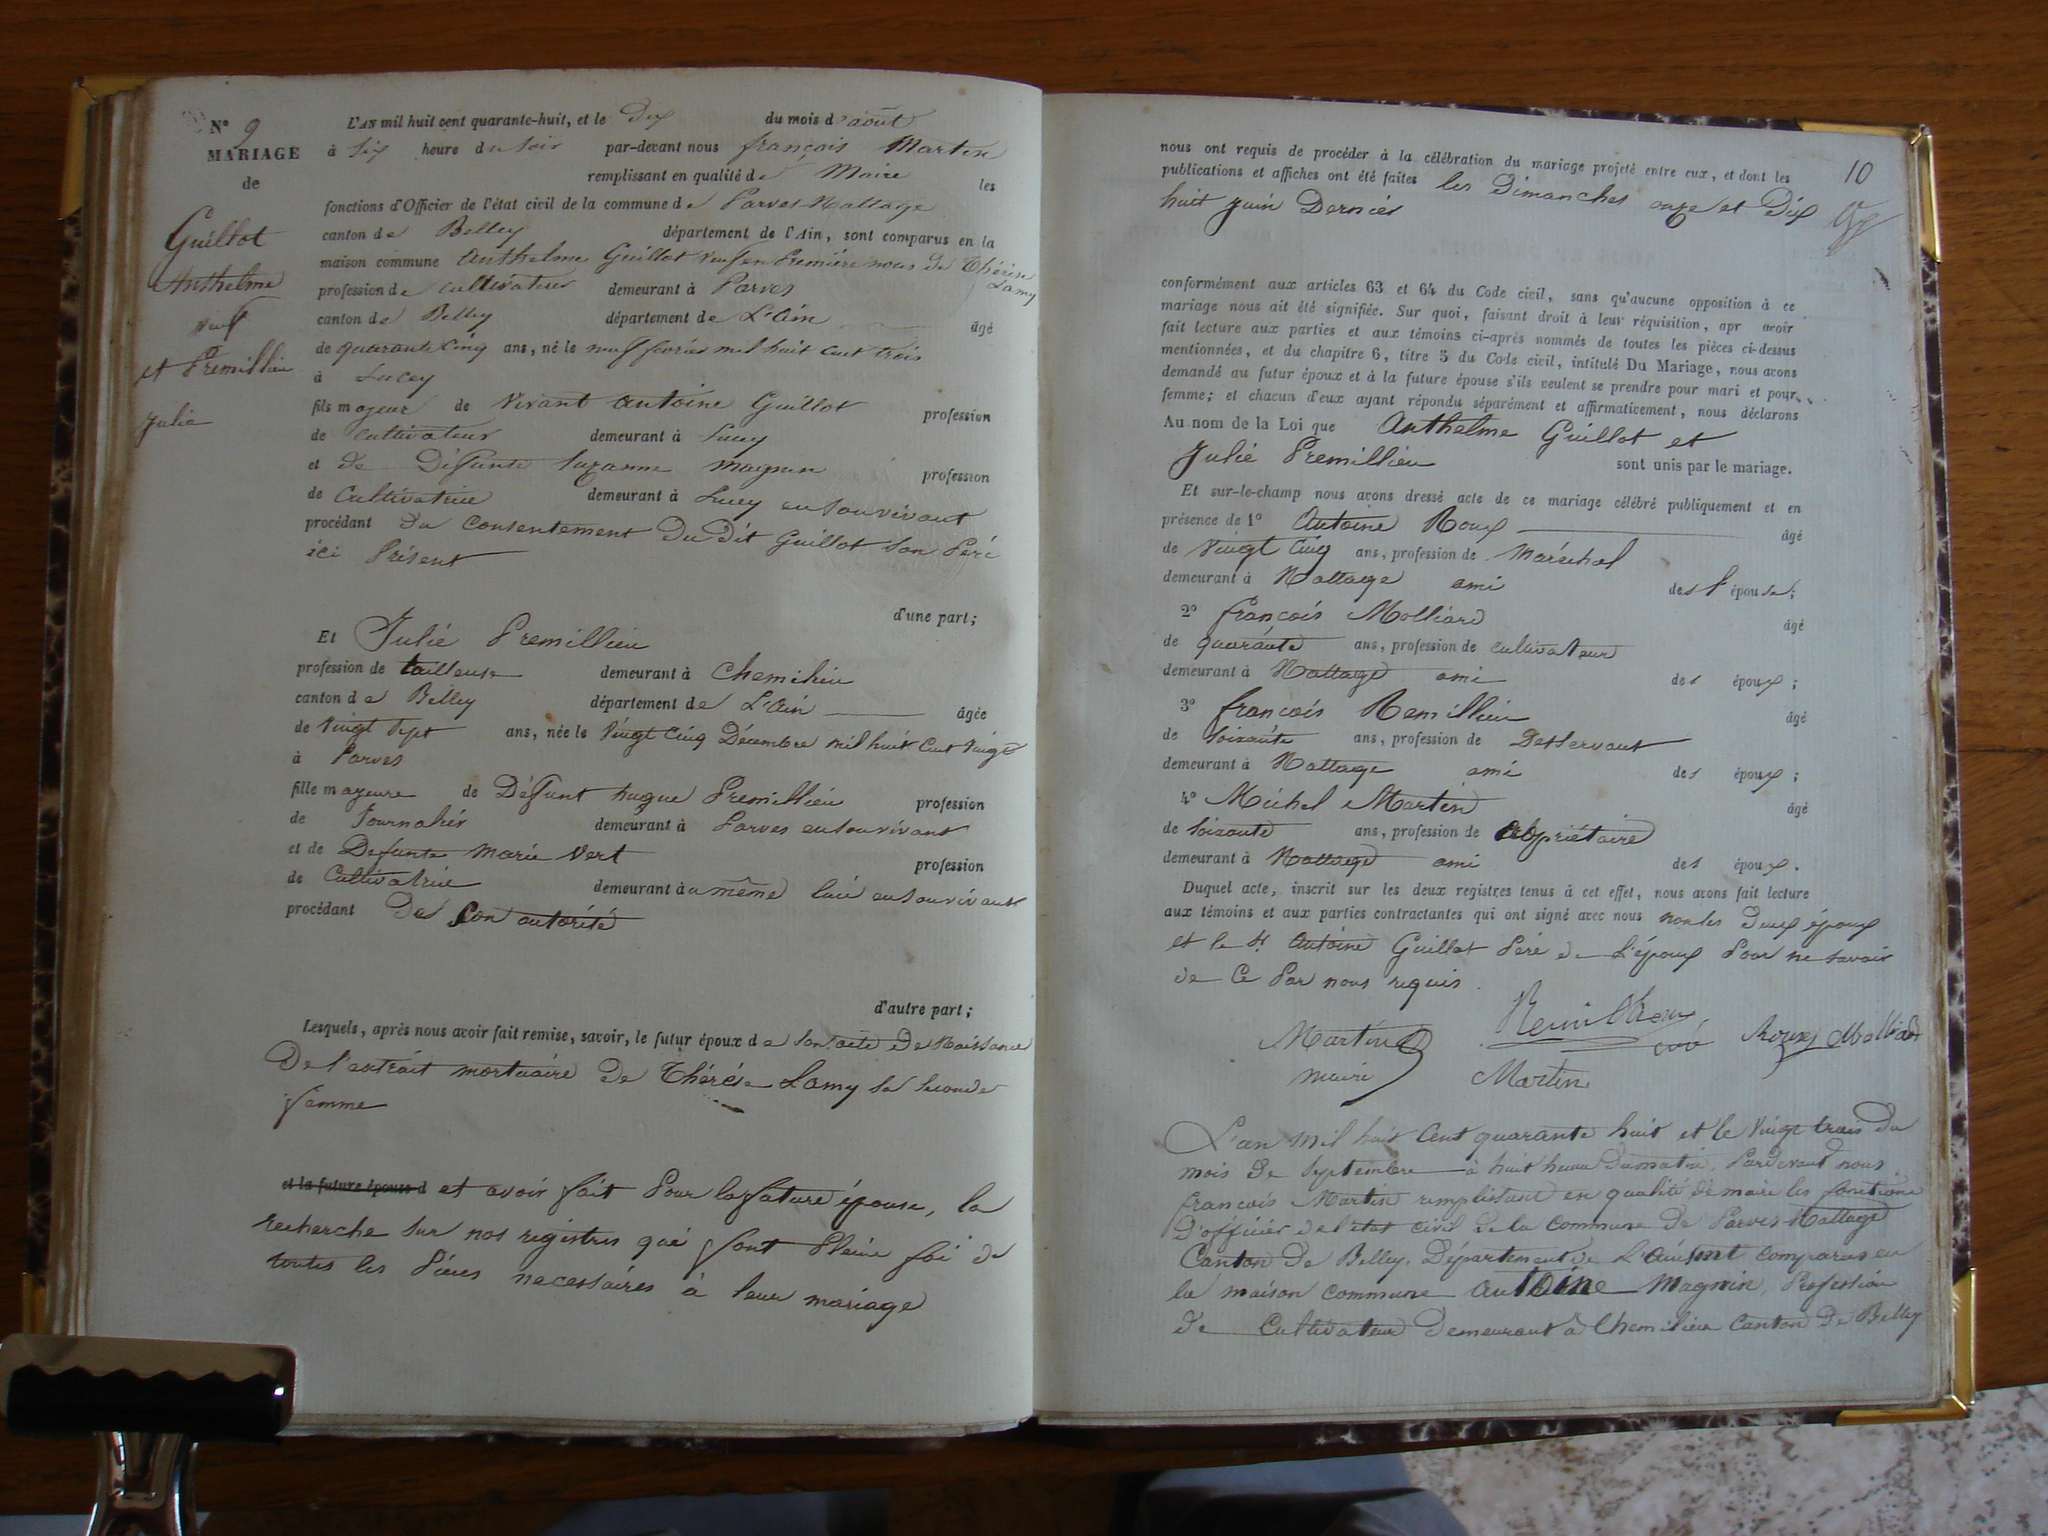 N° 9
MARIAGE
de
Guillot
Anthelme
veuf
et Premillieu
Julie
L'AN mil huit cent quarante-huit, et le dix du mois d'août
à six heure du soir par-devant nous françois Martin
remplissant en qualité de Maire les
fonctions d'Officier de l'état civil de la commune de Parves-Nattage
canton de Belley département de l'Ain, sont comparus en la
maison commune Anthelme Guillot veuf en Première nous de Thérèse Lamy
profession de cultivateur demeurant à Parves
canton de Belley département de L'Ain âgé
de quarante cinq ans, né le neuf fevrier mil huit cent trois
à Lucey
fils majeur de vivant antoine Guillot profession
de cultivateur demeurant à Lucey
et de Défunte Suzanne magnin profession
de Cultivatrice demeurant à Lucey en son vivant
procédant du consentement Du Dit Guillot son Péré
ici Présent
d'une part;
Et Julié Premillieu
profession de tailleuse demeurant à Chemilieu
canton de Belley département de L'Ain âgée
de vingt sept ans, née le vingt cinq Décembre mil huit cent vingt
à Parves
fille majeure de Défunt hugue Premillieu profession
de Journalier demeurant à Parves en son vivant
et de Defunte Marie Vert profession
de Cultivatrice demeurant à u même lieu en son vivant
procédant De son autorité
d'autre part;
Lesquels, après nous avoir fait remise, savoir, le futur époux de son acte de Naissance
De l'extrait mortuaire de Thérèse Lamy sa seconde
femme
et la future épouse d et avoir fait Pour la future épouse, la
recherche sur nos registres qui font Pleine foi de
toutes les Pièces necessaires à leur mariage
10
nous ont requis de procéder à la célébration du mariage projeté entre eux, et dont les
publications et affiches ont été faites les Dimanches onze et Dix
huit juin Dernier
conformément aux articles 63 et 64 du Code civil, sans qu'aucune opposition à ce
mariage nous ait été signifiée. Sur quoi, faisant droit à leur réquisition, apr avoir
fait lecture aux parties et aux témoins ci-après nommés de toutes les pièces ci-dessus
mentionnées, et du chapitre 6, titre 5 du Code civil, intitulé Du Mariage, nous avons
demandé au futur époux et à la future épouse s'ils veulent se prendre pour mari et pour
femme; et chacun d'eux ayant répondu séparément et affirmativement, nous déclarons
Au nom de la Loi que Anthelme Guillot et
Julié Premillieu sont unis par le mariage.
Et sur-le-champ nous avons dressé acte de ce mariage célébré publiquement et en
présence de 1° Antoine Roux âgé
de vingt cinq ans, profession de Maréchal
demeurant à Nattage ami des l'épouse;
2° françois Molliard âgé
de quarante ans, profession de cultivateur
demeurant à Nattage ami des époux;
3° françois Remillieu âgé
de soixante ans, profession de Desservant
demeurant à Nattage ami des époux;
4° Michel Martin âgé
de soixante ans, profession de propriétaire
demeurant à Nattage ami des époux.
Duquel acte, inscrit sur les deux registres tenus à cet effet, nous avons fait lecture
aux témoins et aux parties contractantes qui ont signé avec nous non les deux époux
et le sr Antoine Guillot Péré de L'époux Pour ne savoir
de Ce Par nous requis.
Remillieux
Martin curé Roux Molliard
maire Martin
L'an mil huit Cent quarante huit et le vingt trois du
mois de septembre à huit heures du matin, Pardevant nous
françois Martin remplissant en qualité de maire les fonctions
D'officier de l'état civil de la commune de Parves-Nattage
Canton de Belley, Département de L'Ain sont comparus en
la maison commune Antoine Magnin, Profession
de Cultivateur Demeurant à Chemilieu Canton de Belley